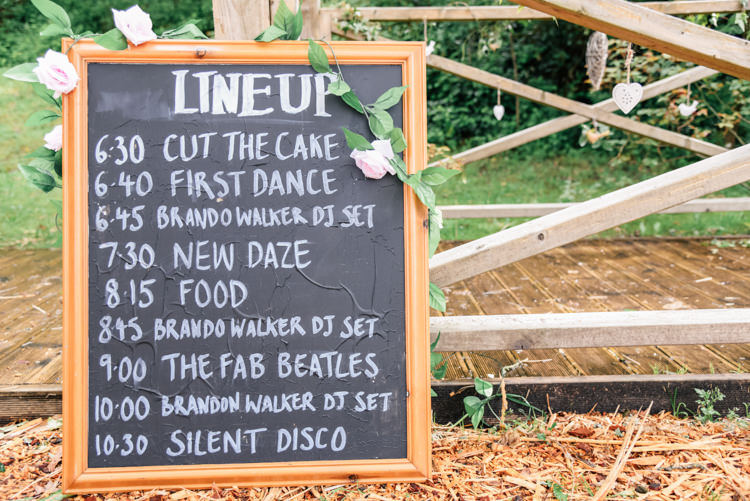 LINEUP
6·30 CUT THE CAKE
6·40 FIRST DANCE
6·45 BRANDO WALKER DJ SET
7.30 NEW DAZE
8·15 FOOD
8·45 BRANDO WALKER DJ SET
9:00 THE FAB BEATLES
10:00 BRANDON WALKER DJ SET
10·30 SILENT DISCO